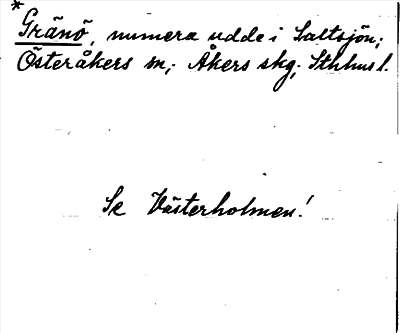 *
Gränö, numera udde i Saltsjön;
Österåkers sn; Åkers skg; Sthlms l.
Se Västerholmen!